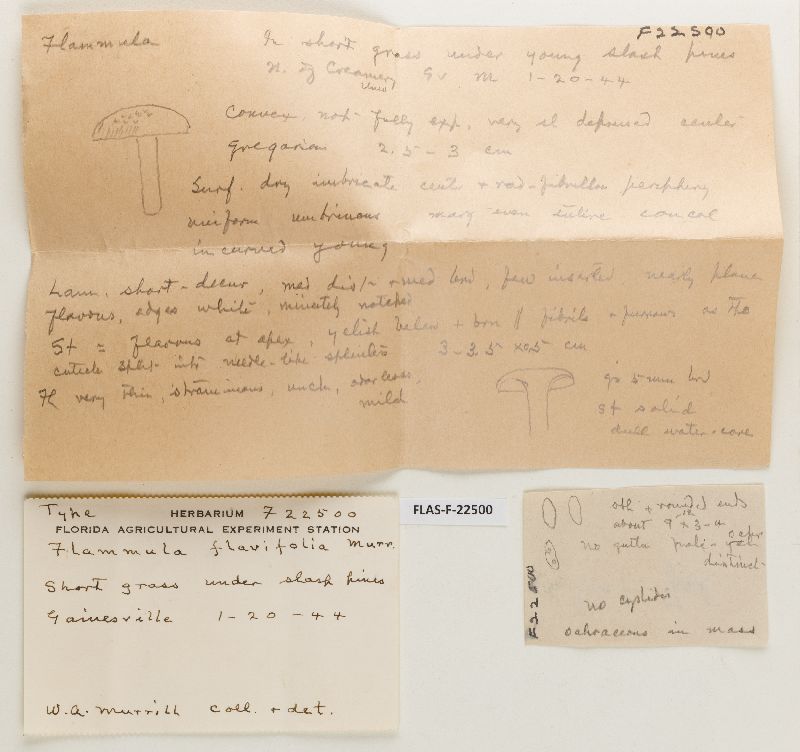 F22500
Flammula
In short grass under young slash pines
N. of Creamery Gv M 1-20-44
Univ
Convex, not fully exp, very sl depressed center
Gregarious 2.5-3 cm
Surf. dry imbricate center + rad-fibrillose periphery
uniform umbrinous marg even entire concol
incurved young
Lam. short-decur, med dist + med brd, few inserted nearly plane
flavous, edges white, minutely notched
St = flavous at apex, yelish below + brn fibrils + furrows as tho
cuticle split into needle-like splinters 3-3.5 x 0.5 cm
Fl very thin, stramineous, unch, odorless,
mild
gs 5 mm brd
st solid
dull water-core
Type HERBARIUM F22500
FLORIDA AGRICULTURAL EXPERIMENT STATION
Flammula flavifolia Murr.
Short grass under slash pines
Gainesville 1-20-44
W.A. Murrill coll. + det.
FLAS-F-22500
F22500
obl + rounded ends
about 9 x 3-4
no gutta pale
distinct
no cystidia
ochraceous in mass